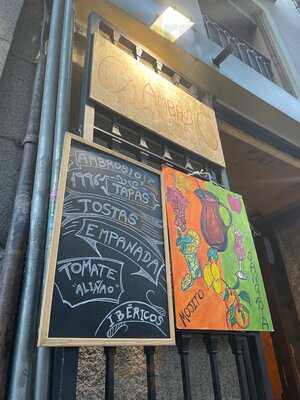 AMBROSIO
AMBROSIO
1996
TAPAS
TOSTAS
EMPANADA
TOMATE
"ALIÑAO"
IBÉRICOS
MOJITO
SANGRIA